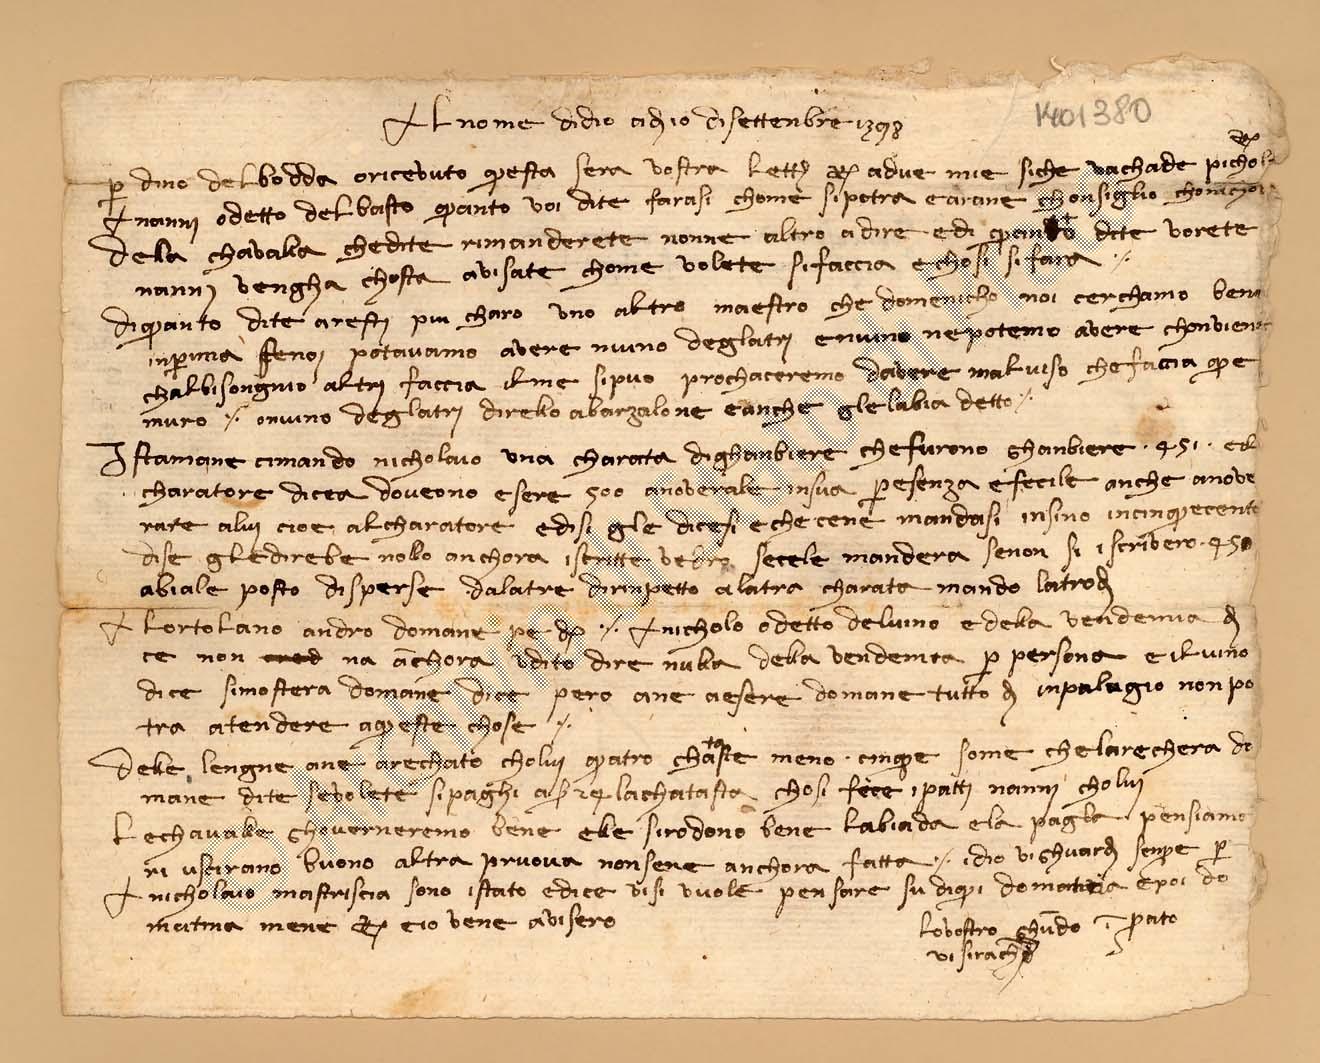 Al nome di dio a dì 10 di settenbre 1398
1401380
p dino del bodda o ricevuto questa sera vostra lett adue mie siche vachade pichola
A nanni o detto del basto quanto voi dite farasi chome si potra e arane chonsiglio
dela chavala che dite rimanderete nonne altro a dire e di quando dite vorete
nanni vengha chosta avisate chome volete si faccia e chosi si fara
di quanto dite aresti piu charo uno altro maestro che domenicho noi cerchamo bene
in prima se noi potavamo avere niuno deglatri e niuno ne potemo avere chonviene
chal bisongnio altri faccia il me si puo prochaceremo davere malviso che faccia que
muro o niuno deglatri dirello a barzalone e anche gle labia detto
Istamane ci mando nicholaio una charata di ghanbiere che furono ghanbiere 451 el
charatore dicea doveono esere 500 anoverale in sua presenza e fecile anche anove
rare a lui cioe al charatore e disi gle dicesi e che cene mandasi insino in cinquecento
dise gle direbe nollo anchora iscritte vedro se cele mandera se non si iscrivero 450
abiale posto disperse dalatre dirinpetto a latra charata mando latrodì
A lortolano andro domane A nicholo o detto del vino e dela vendemia di
ce non na anchora udito dire nulla della vendemia p persona e il vino
dice si mostera domane dice pero ane a esere domane tutto dì in palagio non po
tra atendere a queste chose
dele lengne ane arechato cholui quatro chataste meno cinque some che larechera do
mane dite se volete si paghi a s lachatasta chosi fece i patti nanni cholui
Le chavale ghoverneremo bene ele si rodono bene labiada e la pagla pensiamo
ri usciranno buono altra pruova non sene anchora fatta idio vi ghuardi senpre p
A nicholaio mastriscia sono istato e dice visi vuole pensare su di qui domatina e poi do
matina mene e cio vene avisero
lo vostro ghudo i prato
vi si rach